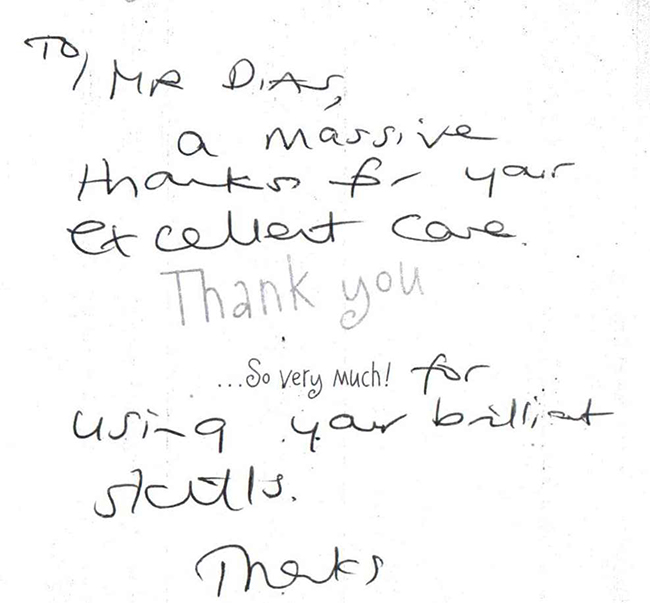 To/ MR DIAS,
a massive
thanks for your
excellent care.
Thank you
...So very much! for
using your brilliant
skills.
Thanks